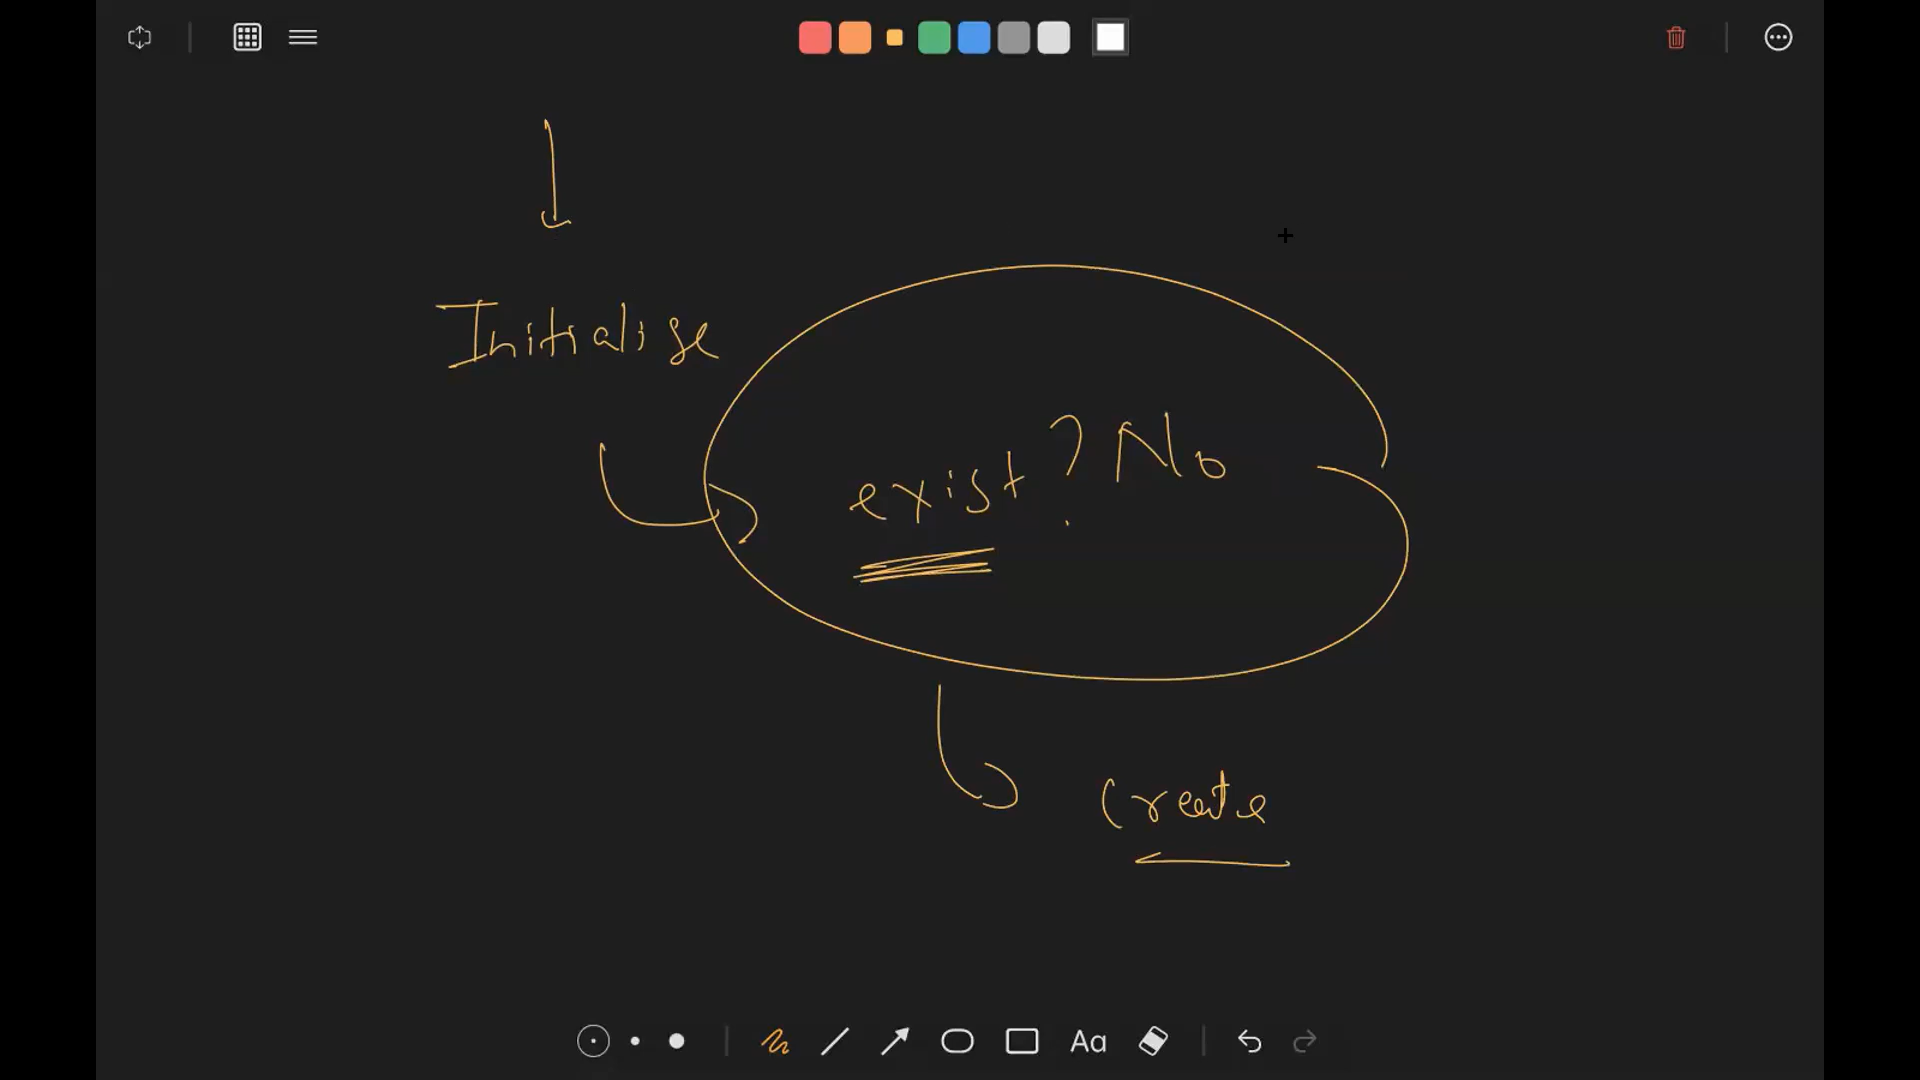 Initialise
exist? No
Create
Aa